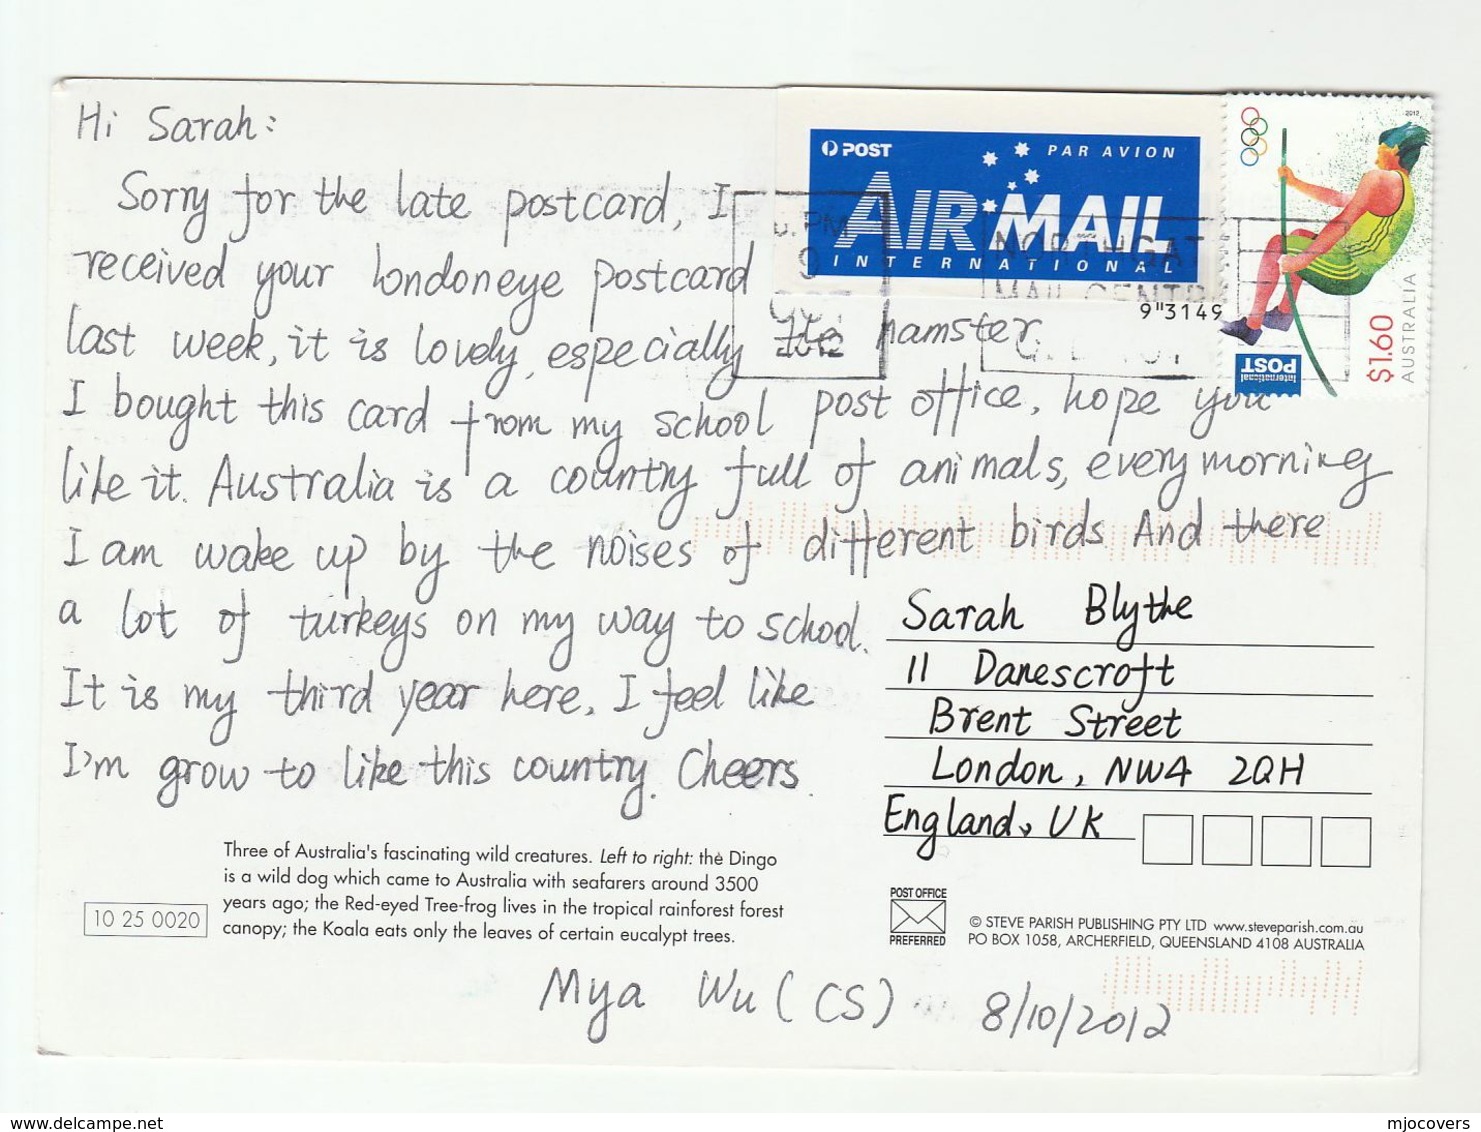 Hi Sarah:
Sorry for the late postcard, I
received your londoneye postcard
last week, it is lovely, especially the hamster
I bought this card from my school post office, hope you
like it. Australia is a country full of animals, every morning
I am wake up by the noises of different birds. And there
a lot of turkeys on my way to school.
It is my third year here, I feel like
I'm grow to like this country. Cheers.
POST
PAR AVION
AIR MAIL
INTERNATIONAL
9"3149
PM
9
OCT
2012
NORTHGATE
MAIL CENTRE
2012
$1.60
AUSTRALIA
International
POST
Sarah Blythe
11 Danescroft
Brent Street
London, NW4 2QH
England, UK
Three of Australia's fascinating wild creatures. Left to right: the Dingo
is a wild dog which came to Australia with seafarers around 3500
years ago; the Red-eyed Tree-frog lives in the tropical rainforest forest
canopy; the Koala eats only the leaves of certain eucalypt trees.
10 25 0020
POST OFFICE
PREFERRED
© STEVE PARISH PUBLISHING PTY LTD www.steveparish.com.au
PO BOX 1058, ARCHERFIELD, QUEENSLAND 4108 AUSTRALIA
Mya Wu (CS) 8/10/2012
www.delcampe.net
mjocovers